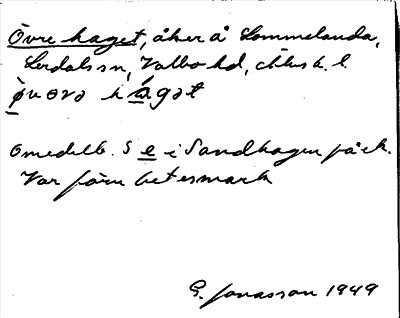 Övre haget, åker å Sommelanda,
Lerdals sn, Valbo hd, Älvsb. l.
ø̀vərə hágət
Omedelb. S e i Sandhagen på ek.
Var förr betesmark
G. Jonasson 1949